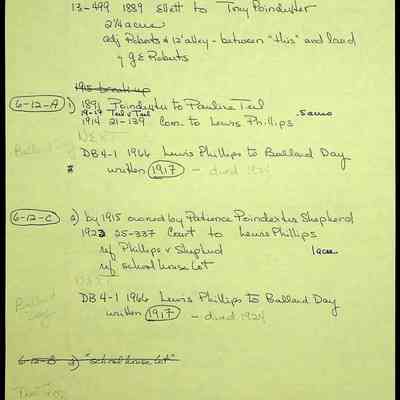 13-499 1889 Ellett to Tony Poindexter
2¼ acres
adj Roberts & 12' alley - between "this" and land
of G E Roberts
1915 break-up
6-12-A 1) 1891 Poindexter to Pauline Teel
19-19 Teel v Teel .5 acres
1914 21-139 Com. to Lewis Phillips
NEXT
Ballard Day
DB 4-1 1966 Lewis Phillips to Ballard Day
written 1917 - died 1924
6-12-C 2) by 1915 owned by Patience Poindexter Shepherd
1923 25-337 Court to Lewis Phillips
ref Phillips v Shepherd 1 acre
ref school house lot
Ballard Day
DB 4-1 1966 Lewis Phillips to Ballard Day
written 1917 - died 1924
6-12-B 3) "school house lot"